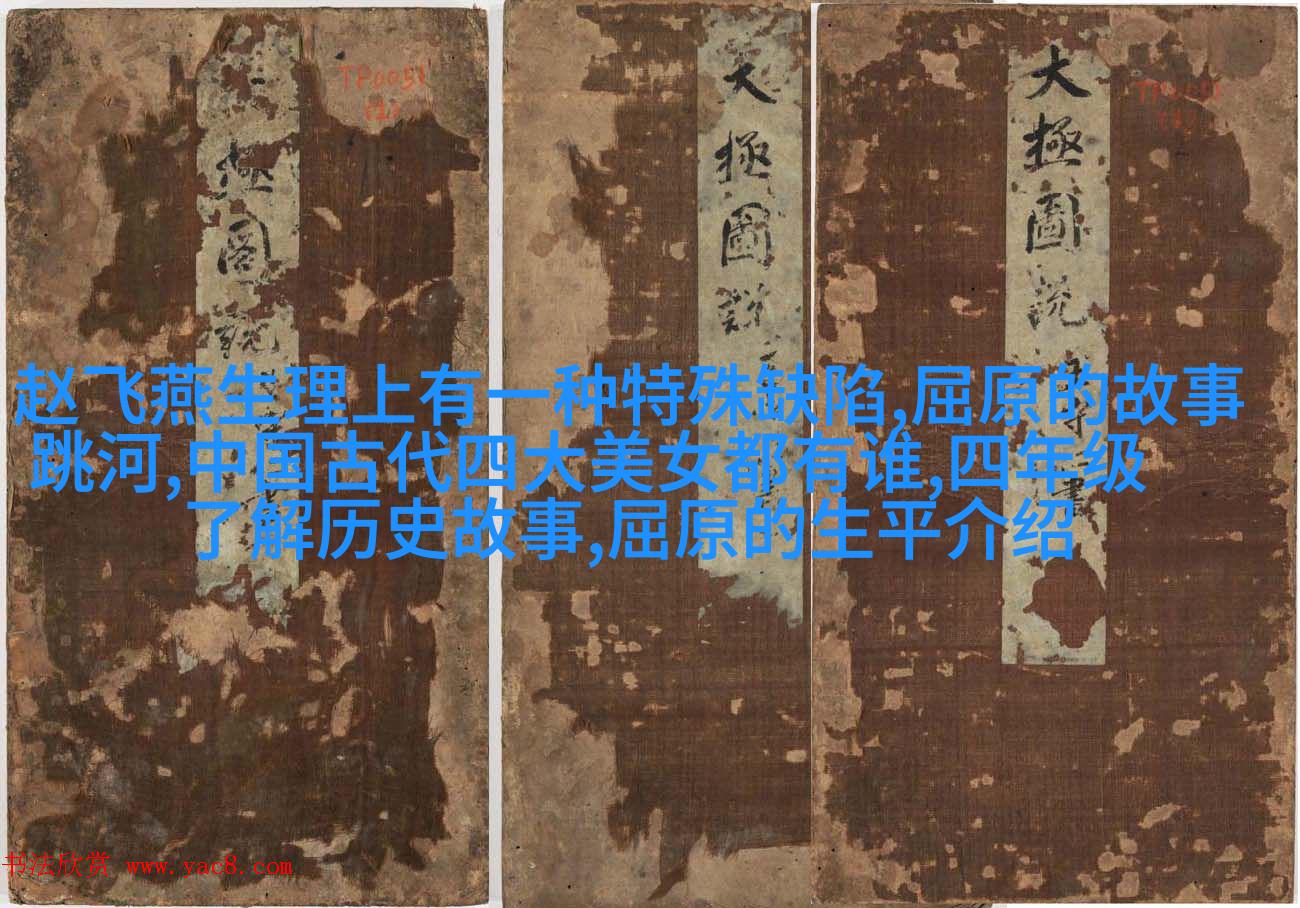 TP0051
(1)
極圖説
大極圖説
大極圖説
赵飞燕生理上有一种特殊缺陷,屈原的故事
跳河,中国古代四大美女都有谁,四年级
了解历史故事,屈原的生平介绍
书法欣赏 www.yac8.com